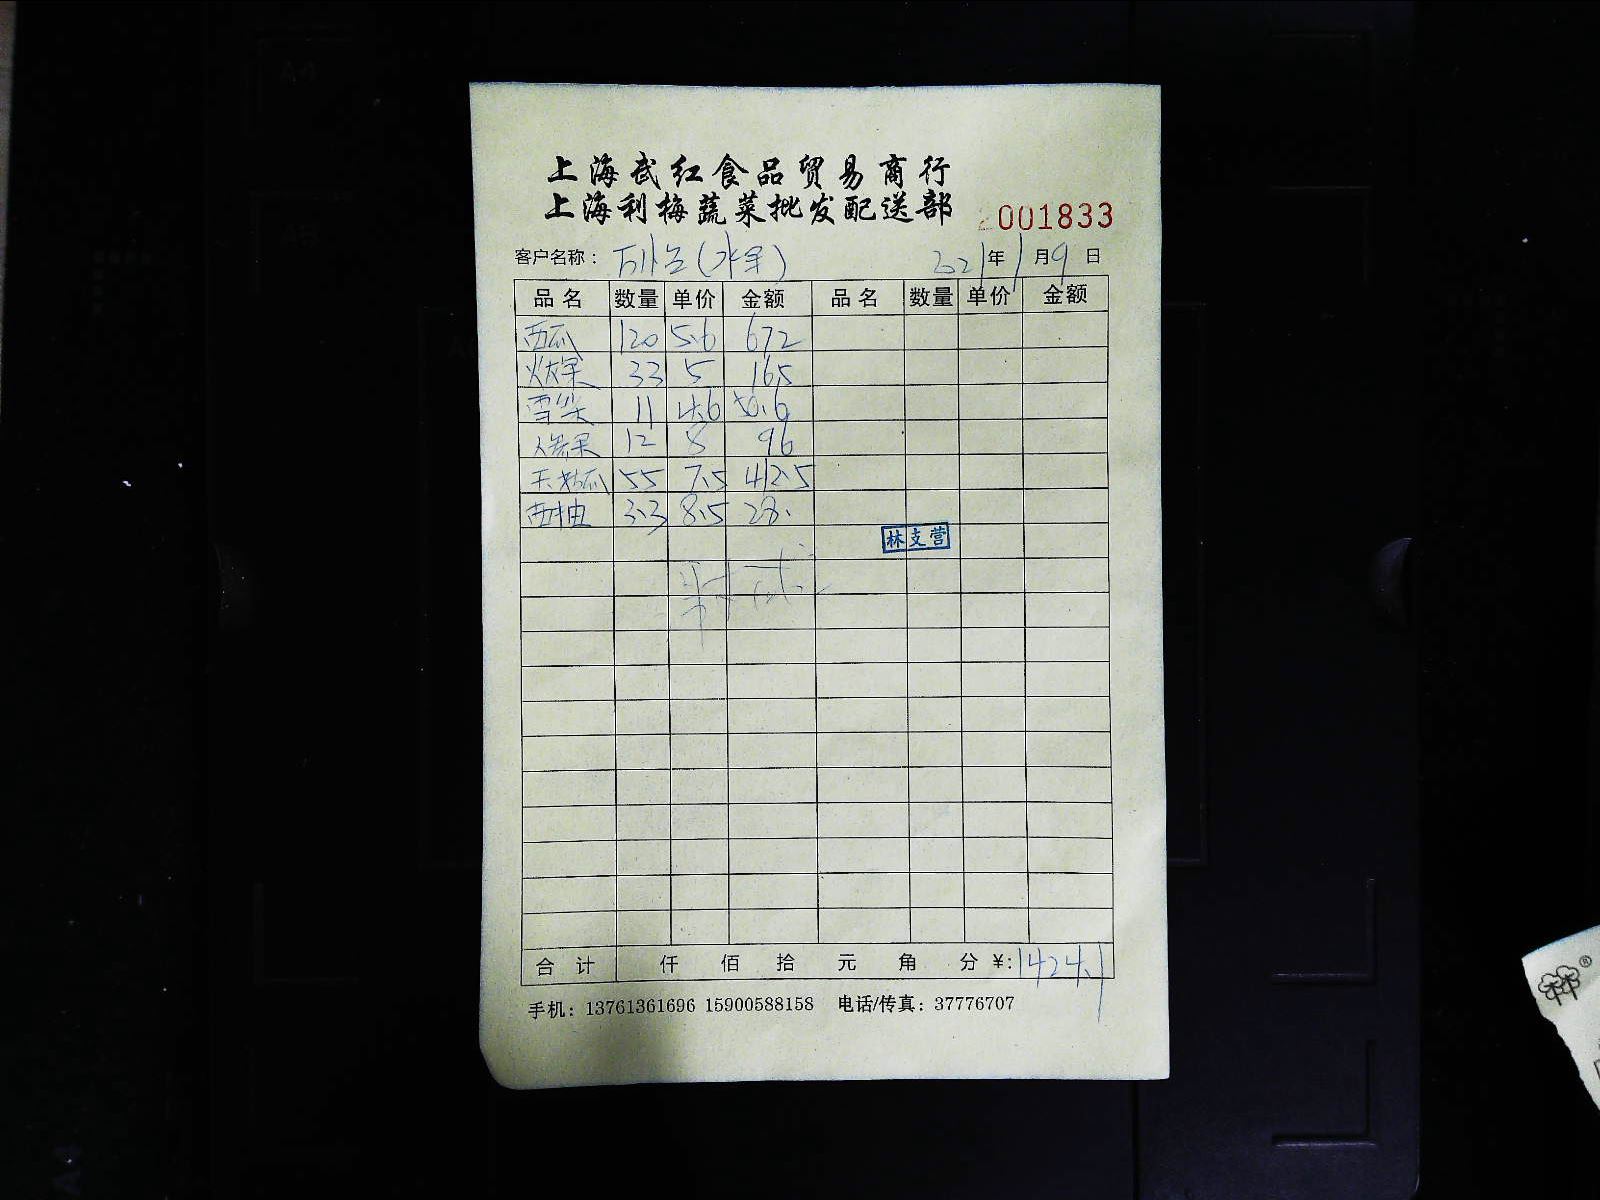 上海武红食品贸易商行
上海利梅蔬菜批发配送部
2001833
客户名称： (水果) 2021年1月9日
品名 数量 单价 金额 品名 数量 单价 金额
西瓜 120 5.6 672
火龙果 33 5 165
雪梨 11 4.6 50.6
人参果 12 8 96
55 7.5 412.5
西柚 3.3 8.5 28.
林支营
合计 仟 佰 拾 元 角 分 ¥: 1424.1
手机: 13761361696 15900588158 电话/传真: 37776707
A4
A5
®